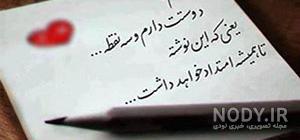 دوستت دارم و سه نقطه...
یعنی که این نوشته
تا همیشه امتداد خواهد داشت...
NODY.IR
مجله تصویری، خبری نودی